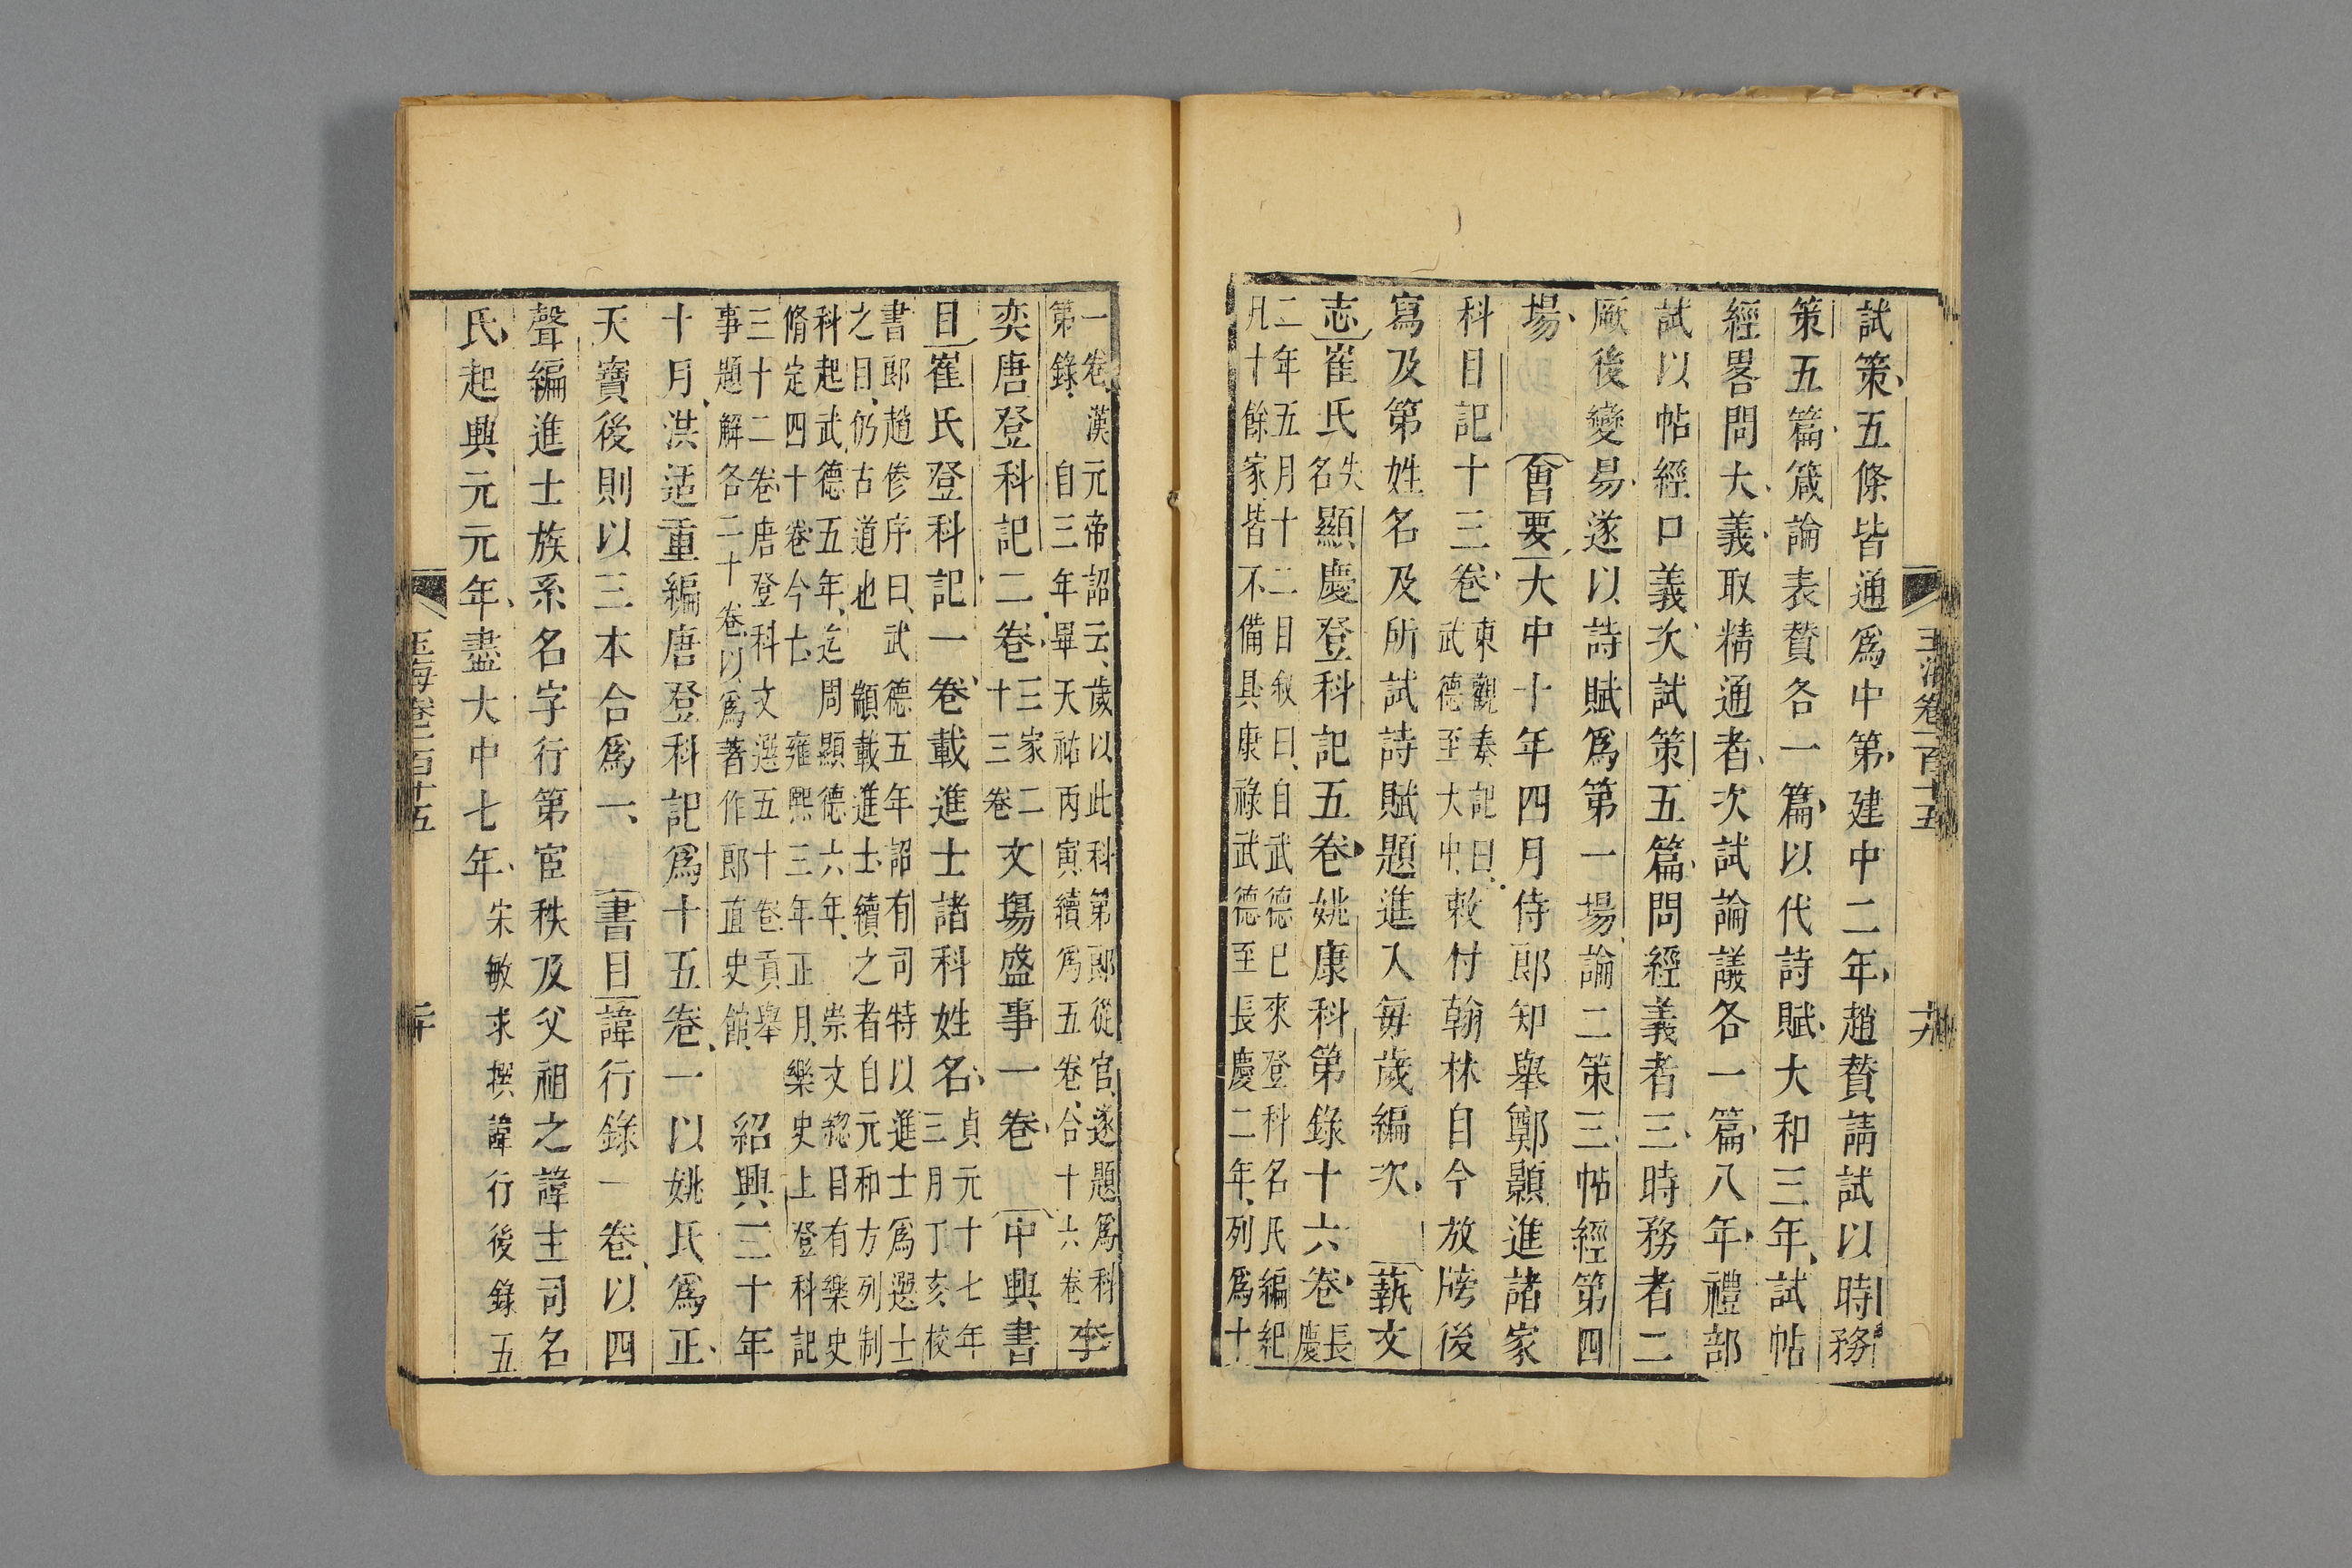 玉海卷一百十五
十九
試策五條皆通爲中第建中二年趙贊請試以時務
策五篇箴論表贊各一篇以代詩賦大和三年試帖
經畧問大義取精通者次試論議各一篇八年禮部
試以帖經口義次試策五篇問經義者三時務者二
厥後變易遂以詩賦爲第一場論二策三帖經第四
場 會要大中十年四月侍郎知舉鄭顥進諸家
科目記十三卷東觀奏記曰
武德至大中敕付翰林自今放牓後
寫及第姓名及所試詩賦題進入每歲編次 藝文
志崔氏失
名顯慶登科記五卷姚康科第錄十六卷長
慶
二年五月十二日叙曰自武德已來登科名氏編紀
凡十餘家皆不備具康祿武德至長慶二年列爲十
一卷漢元帝詔云歲以此科第郎從官遂題爲科
第錄 自三年畢天祐丙寅續爲五卷合十六卷李
奕唐登科記二卷三家二
十三卷文場盛事一卷 中興書
目崔氏登科記一卷載進士諸科姓名貞元十七年
三月丁亥校
書郎趙傪序曰武德五年詔有司特以進士爲選士
之目仍古道也 顓載進士續之者自元和方列制
科起武德五年迄周顯德六年 崇文總目有樂史
脩定四十卷今亡 雍熙三年正月樂史上登科記
三十二卷唐登科文選五十卷貢舉
事題解各二十卷以爲著作郎直史館 紹興三十年
十月洪适重編唐登科記爲十五卷一以姚氏爲正
天寶後則以三本合爲一 書目諱行錄一卷以四
聲編進士族系名字行第宦秩及父祖之諱主司名
氏起興元元年盡大中七年宋敏求撰諱行後錄五
玉海卷一百十五
二十